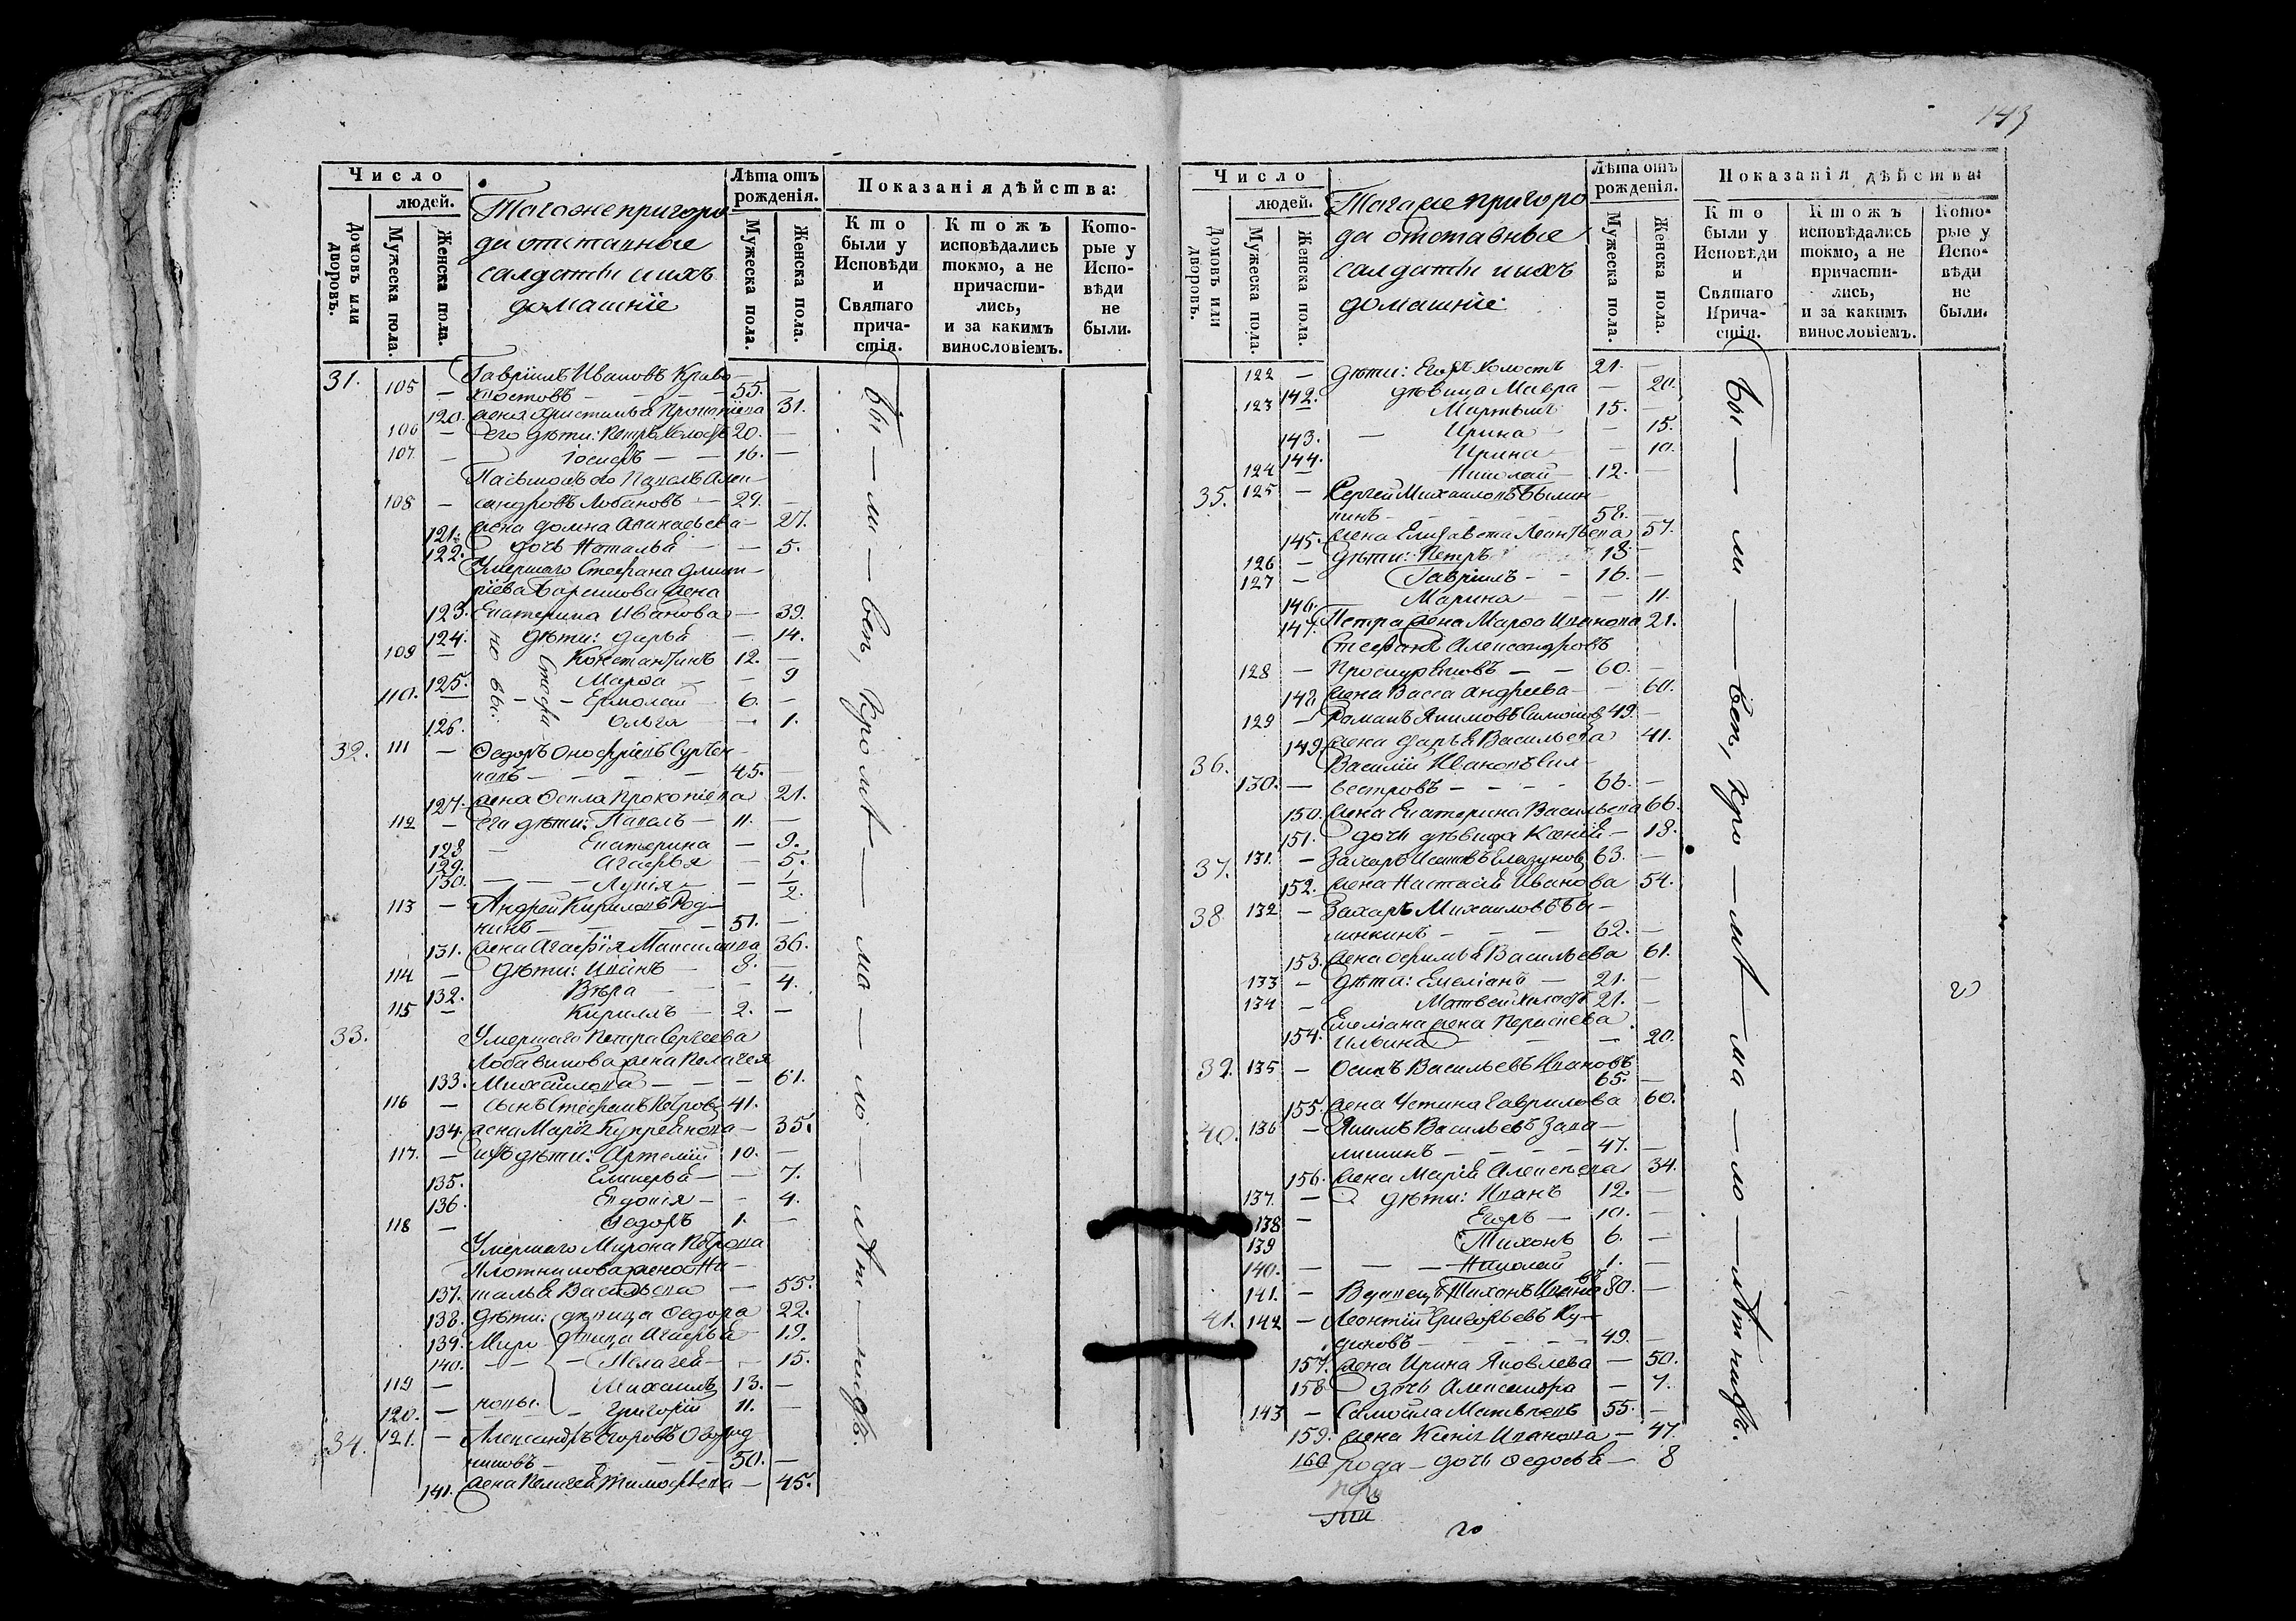 143
Число
людей.
Домовъ или дворовъ.
Мужеска пола.
Женска пола.
Тагоже пригоро
да отставные
салдаты и ихъ
домашніе
Лѣта отъ рожденія.
Мужеска пола.
Женска пола.
Показанія дѣйства:
Кто были у Исповѣди и Святаго причастія.
Ктожъ исповѣдались токмо, а не причастились, и за какимъ винословіемъ.
Которые у Исповѣди не были.
31. 105 — Гавріилъ Ивановъ
хвостовъ — 55. —
120. жена Христинья 31.
106 — его дѣти: Петръ холостъ 20. —
107. — Іосифъ — 16. —
Павелъ Алек-
108 — сандровъ Лобановъ — 29. —
121. жена Домна Афанасьева — 27.
122. дочь Наталья — 5.
Умершаго Стефана Дмит-
ріева жена
123. Екатерина Иванова — 39.
124. дѣти: Дарья — 14.
109 — Константинъ 12. —
125. Марфа — 9
110. — Ермолай 6. —
126. Ольга — 1.
32. 111 — Федоръ
45. —
127. жена Фекла Прокопіева 21.
112 — его дѣти: Павелъ — 11. —
128 — Екатерина — 9.
129. Агафья — 5.
130. — Лукія — 1/2.
113 — Андрей Кириловъ Род-
нинъ — 51. —
131. жена Агафія Максимова 36.
114 — дѣти: Иванъ — 8. —
132. Вѣра — 4.
115 — Кириллъ — 2. —
33. Умершаго Петра Сергеева
жена Пелагея
133. Михайлова — 61.
116 — сынъ Стефанъ Петровъ 41.
134. жена Марія Купреянова — 35.
117. — ихъ дѣти: Артемій 10. —
135. Гликерья — 7.
136. Евдокія — 4.
118 — Федоръ 1. —
Умершаго Мирона Петрова
Плотникова жена На-
137. талья Васильева — 55.
138. дѣти: дѣвица Федора 22.
139. Миро дѣвица Агафья 19.
140. — Пелагея — 15.
119 — Михаилъ 13. —
120. — новы. — Григорій 11. —
34. 121. — Александръ Егоровъ Огород
никовъ — 50. —
141. жена Пелагея Тимофѣева — 45.
бы — ли — вст, кро — мѣ — ма — ло — лѣт — нихъ.
Число
людей.
Домовъ или дворовъ.
Мужеска пола.
Женска пола.
Тагоже пригоро
да отставные
салдаты и ихъ
домашніе
Лѣта отъ рожденія.
Мужеска пола.
Женска пола.
Показанія дѣйства:
Кто были у Исповѣди и Святаго Причастія.
Ктожъ исповѣдались токмо, а не причастились, и за какимъ винословіемъ.
Которые у Исповѣди не были.
122 — дѣти: Егоръ холостъ 21. —
142. дѣвица Мавра — 20.
123 — Мартынъ 15. —
143. — Ирина — 15.
144. Ирина — 10.
124 — Николай — 12. —
35. 125 — Сергей Михаиловъ Былин-
нинъ — 58. —
145. жена Елисавета Леонтьева 57.
126 — дѣти: Петръ 18. —
127 — Гавріилъ — 16. —
146. Марина — 11.
147. Петра жена Марфа Иванова 21.
Стефанъ Александровъ
128 — Проскуряковъ — 60. —
148. жена Васса Андреева — 60.
129 — Романъ Якимовъ 49. —
149. жена Дарья Васильева 41.
36. Василій Ивановъ Сил-
130. — вестровъ — 66. —
150. жена Екатерина Васильева 66.
151. дочь дѣвица Ксенія — 18.
37. 131. — Захаръ 63. —
152. жена Настасія Иванова 54.
38 132 — Захаръ Михаиловъ Бы-
линкинъ — 62. —
153. жена Васильева 61.
133 — дѣти: Емеліанъ — 21. —
134 — Матвей холостъ 21. —
Емеліана жена
154. Ильина — 20.
39. 135 — Осипъ Васильевъ Ивановъ
65. —
155. жена Устина Гаврилова 60.
40. 136 — Якимъ Васильевъ
— 47. —
156. жена Марія Алексѣева 34.
137. — дѣти: Иванъ 12. —
138 — Егоръ — 10. —
139 Тихонъ 6. —
140. — Николай 1. —
141. — Тихонъ Ивановъ 80. —
41. 142 — Леонтій Григорьевъ Ку-
диновъ — 49. —
157. жена Ирина Яковлева — 50.
158 дочь Александра — 7.
143 — Самойла Матвѣевъ 55. —
159. жена Ксенія Иванова — 47.
160 рода — дочь Федосья — 8
бы — ли — вст, кро — мѣ — ма — ло — лѣт — нихъ.